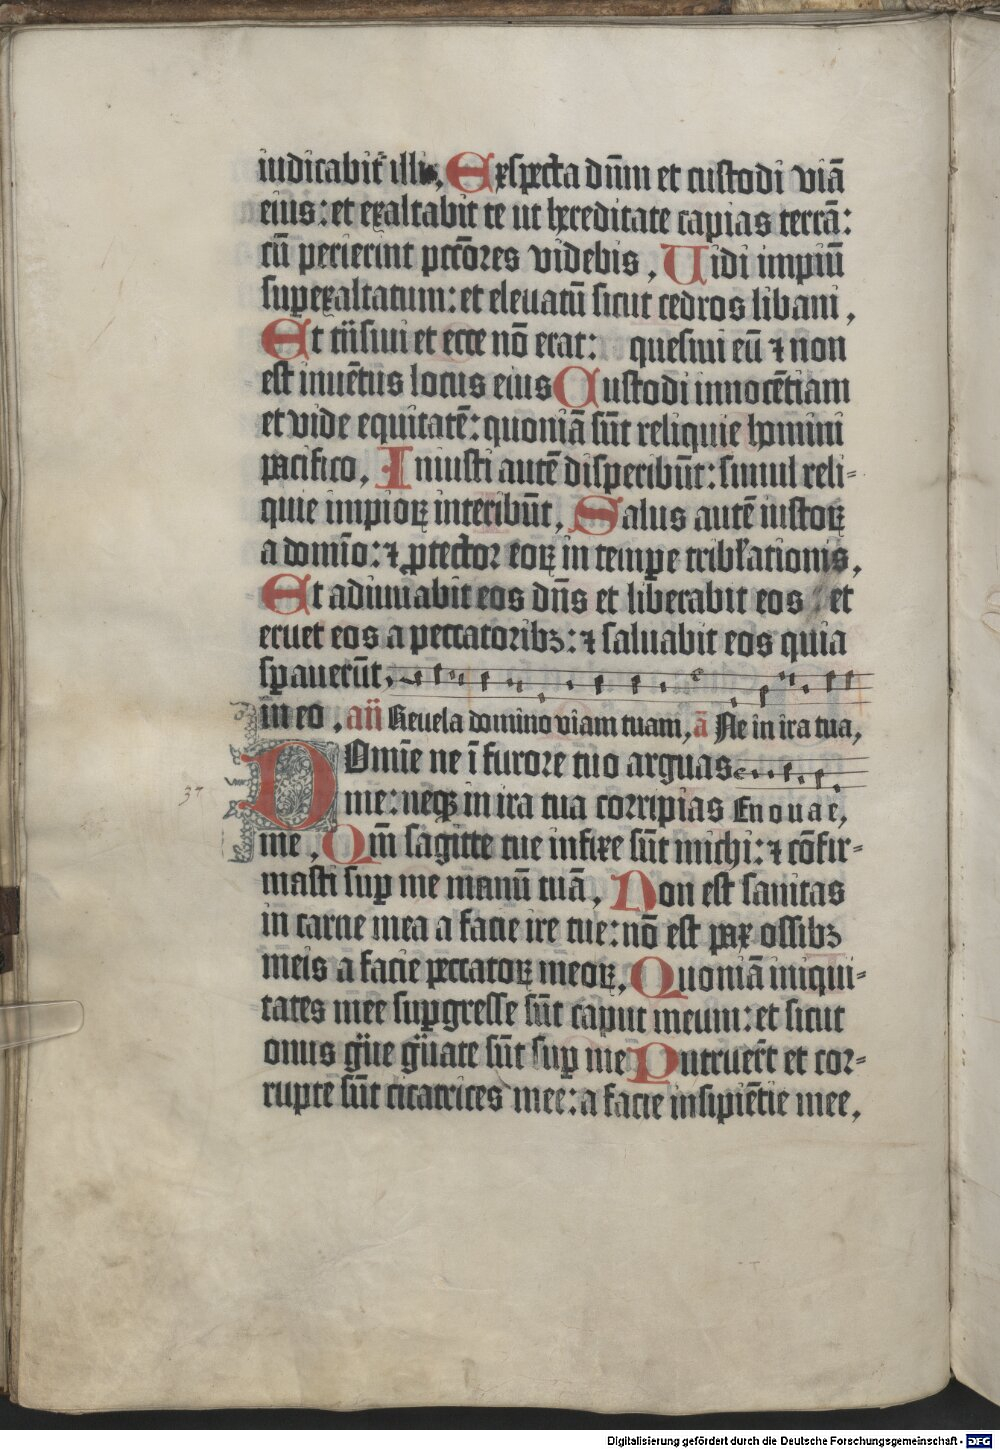 iudicabit̄ illi, Exspecta dn̄m et custodi viā
eius: et exaltabit te ut hereditate capias terrā:
cū perierint pctōres videbis, Uidi impiū
sup̱exaltatum: et eleuatū sicut cedros libani,
Et tn̄siui et ecce nō erat: quesiui eū ⁊ non
est inuētus locus eius Custodi innocētiam
et vide equitatē: quoniā sūt reliquie homini
pacifico, Iniusti autē disperibūt: simul reli-
quie impioꝝ interibūt, Salus autē iustoꝝ
a domīo: ⁊ ꝓtector eoꝝ in temp̱e tribl̄ationis,
Et adiuuabit eos dn̄s et liberabit eos et
eruet eos a peccatoribꝫ: ⁊ saluabit eos quia
sp̱auerūt,
in eo, an̄ Reuela domino viam tuam, ā Ne in ira tua,
37
Domīe ne ī furore tuo arguas
me: neqꝫ in ira tua corripias Enouae,
me, Qm̄ sagitte tue infixe sūt michi: ⁊ cōfir-
masti sup̱ me manū tuā, Non est sanitas
in carne mea a facie ire tue: nō est pax ossibꝫ
meis a facie peccatoꝝ meoꝝ, Quoniā iniqui-
tates mee sup̱gresse sūt caput meum: et sicut
onus gͣue gͣuate sūt sup̱ me Putruer̄t et cor-
rupte sūt cicatrices mee: a facie insipiētie mee,
Digitalisierung gefördert durch die Deutsche Forschungsgemeinschaft - DFG